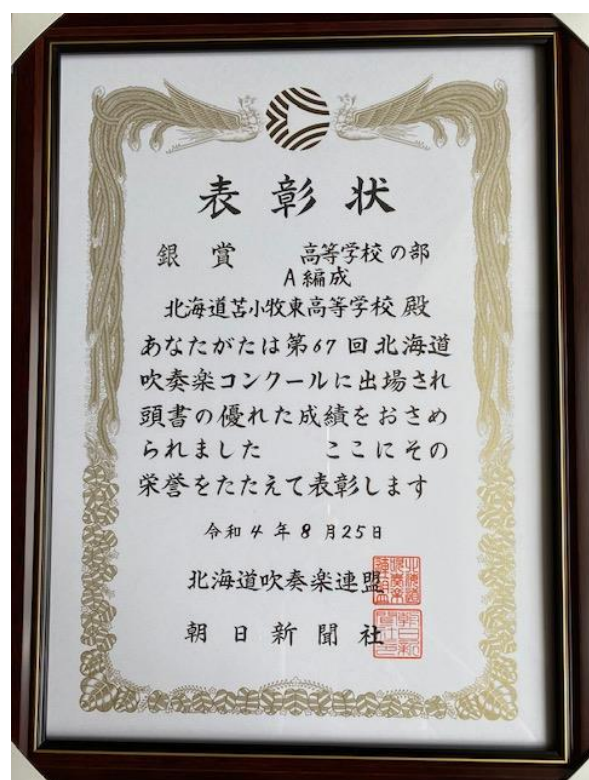 表彰状
銀賞 高等学校の部
A編成
北海道苫小牧東高等学校 殿
あなたがたは第67回北海道
吹奏楽コンクールに出場され
頭書の優れた成績をおさめ
られました ここにその
栄誉をたたえて表彰します
令和4年8月25日
北海道吹奏楽連盟
朝日新聞社